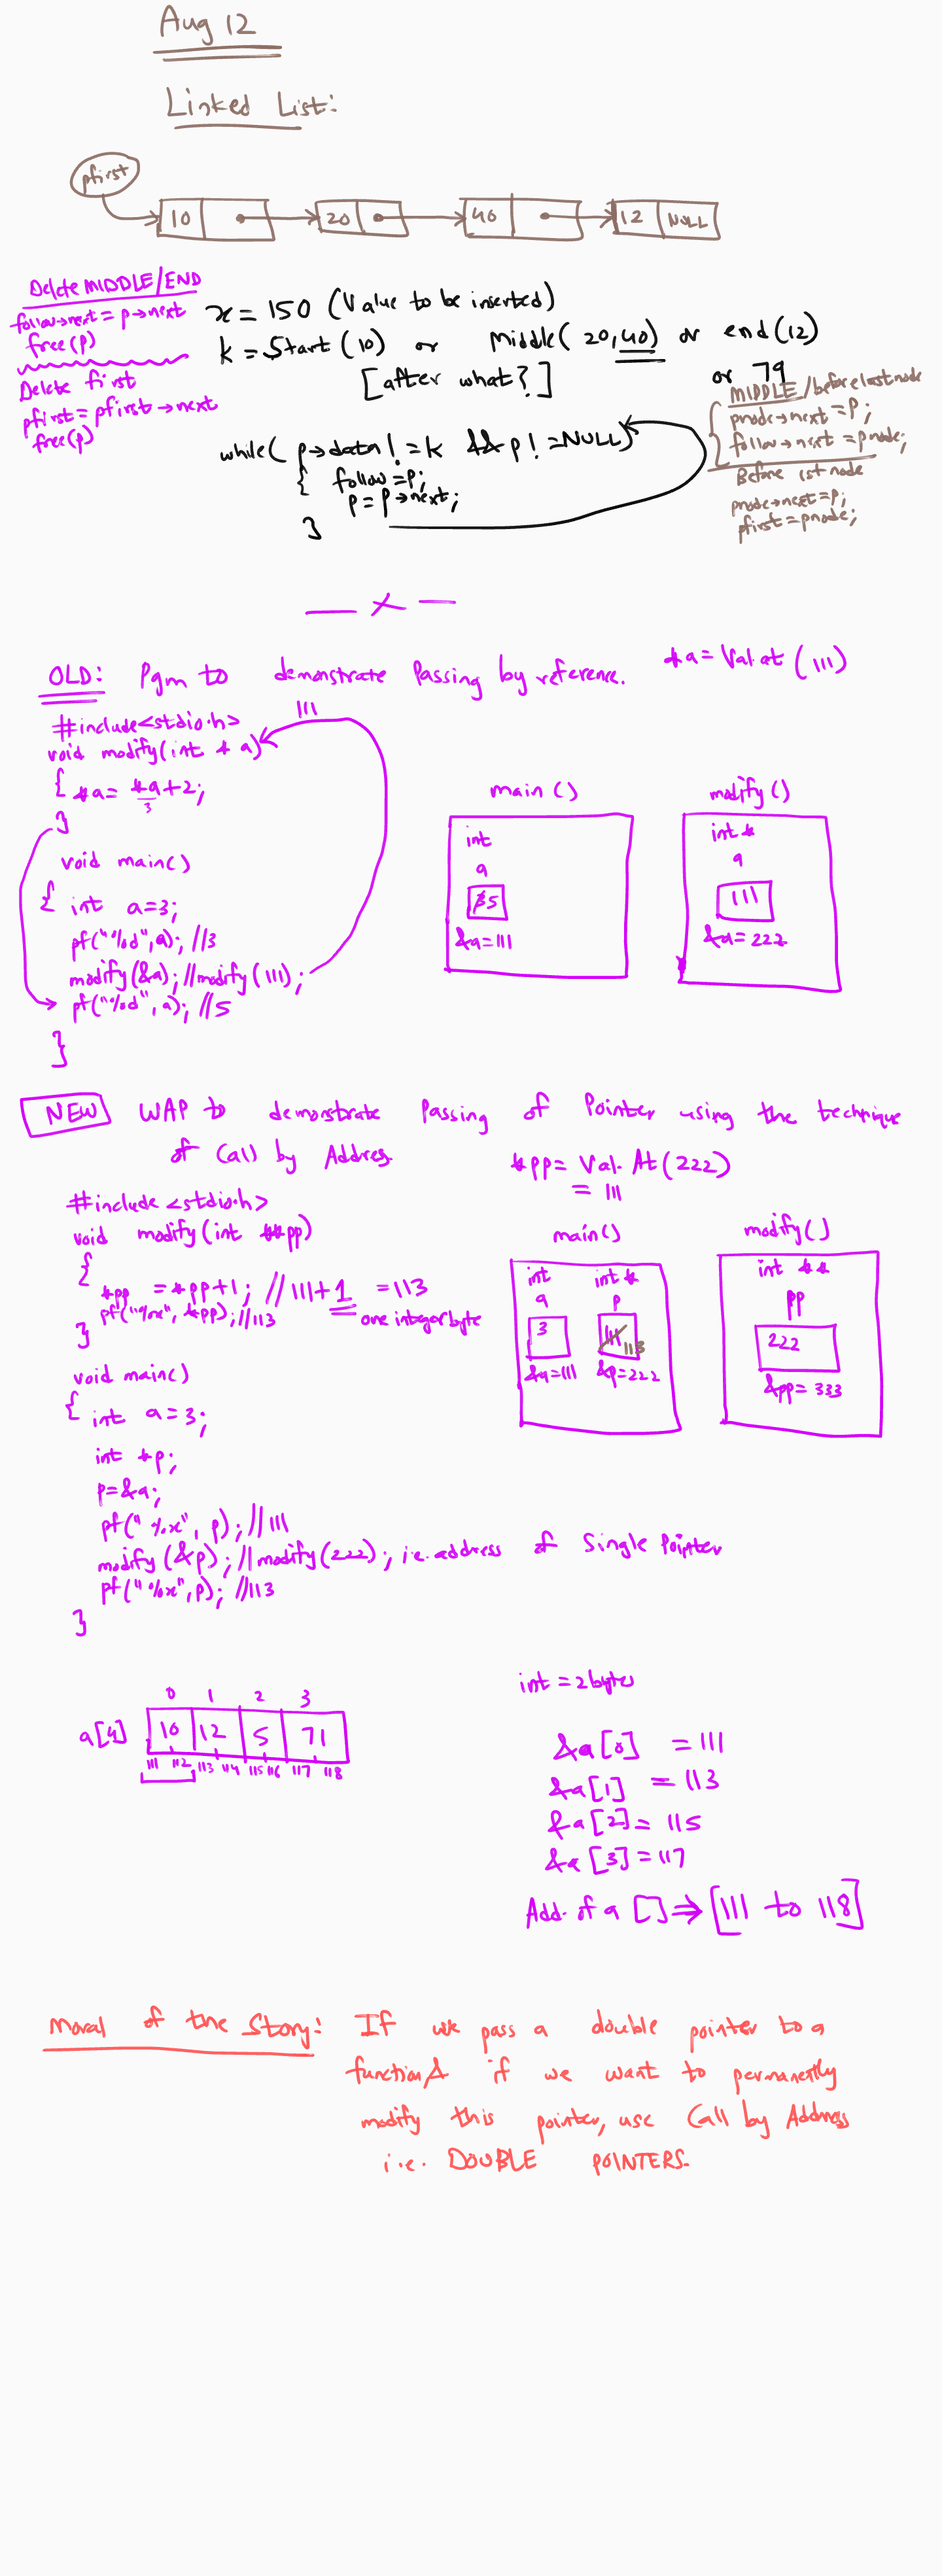 Aug 12
Linked List:
pfirst
10
20
40
12 NULL
Delete MIDDLE/END
follow→next = p→next
free(p)
Delete first
pfirst = pfirst→next
free(p)
x = 150 (Value to be inserted)
k = Start (10) or Middle( 20,40) or end (12)
or 79
[after what?]
while( p→data != k && p != NULL)
{ follow = p;
p = p→next;
}
MIDDLE /before last node
pnode→next = p;
follow→next = pnode;
Before 1st node
pnode→next = p;
pfirst = pnode;
— x —
OLD: Pgm to demonstrate Passing by reference. *a = Val at (111)
111
#include<stdio.h>
void modify(int * a)
{ *a = *a+2;
3
}
void main()
{ int a=3;
pf("%d", a); //3
modify(&a); //modify(111);
pf("%d", a); //5
}
main ()
int
a
3 5
&a = 111
modify()
int *
a
111
&a = 222
NEW WAP to demonstrate Passing of Pointer using the technique
of Call by Address
*pp = Val. At (222)
= 111
#include <stdio.h>
void modify(int **pp)
{
*pp = *pp+1; //111+1 = 113
one integer byte
pf("%x", *pp); //113
}
void main()
{ int a=3;
int *p;
p=&a;
pf("%x", p); //111
modify (&p); //modify(222); i.e. address of Single Pointer
pf("%x", p); //113
}
main()
int int *
a p
3 111 113
&a=111 &p=222
modify()
int **
pp
222
&pp = 333
0 1 2 3
a[4] 10 12 5 71
111 112 113 114 115 116 117 118
int = 2 bytes
&a[0] = 111
&a[1] = 113
&a[2] = 115
&a[3] = 117
Add. of a [] ⇒ [111 to 118]
Moral of the Story: If we pass a double pointer to a
function & if we want to permanently
modify this pointer, use Call by Address
i.e. DOUBLE POINTERS.